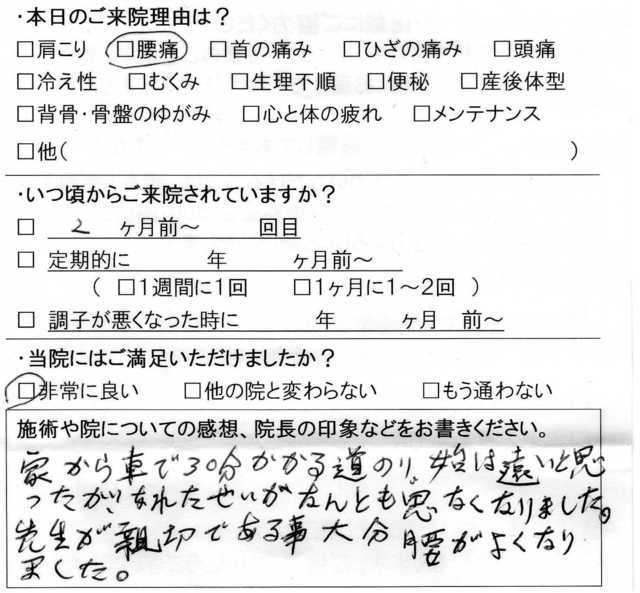 ・本日のご来院理由は？
□肩こり □腰痛 □首の痛み □ひざの痛み □頭痛
□冷え性 □むくみ □生理不順 □便秘 □産後体型
□背骨・骨盤のゆがみ □心と体の疲れ □メンテナンス
□他( )
・いつ頃からご来院されていますか？
□ 2 ヶ月前～ 回目
□ 定期的に 年 ヶ月前～
( □1週間に1回 □1ヶ月に1～2回 )
□ 調子が悪くなった時に 年 ヶ月 前～
・当院にはご満足いただけましたか？
□非常に良い □他の院と変わらない □もう通わない
施術や院についての感想、院長の印象などをお書きください。
家から車で30分かかる道のり。始は遠いと思
ったが、なれたせいがなんとも思なくなりました。
先生が親切である事大分腰がよくなり
ました。